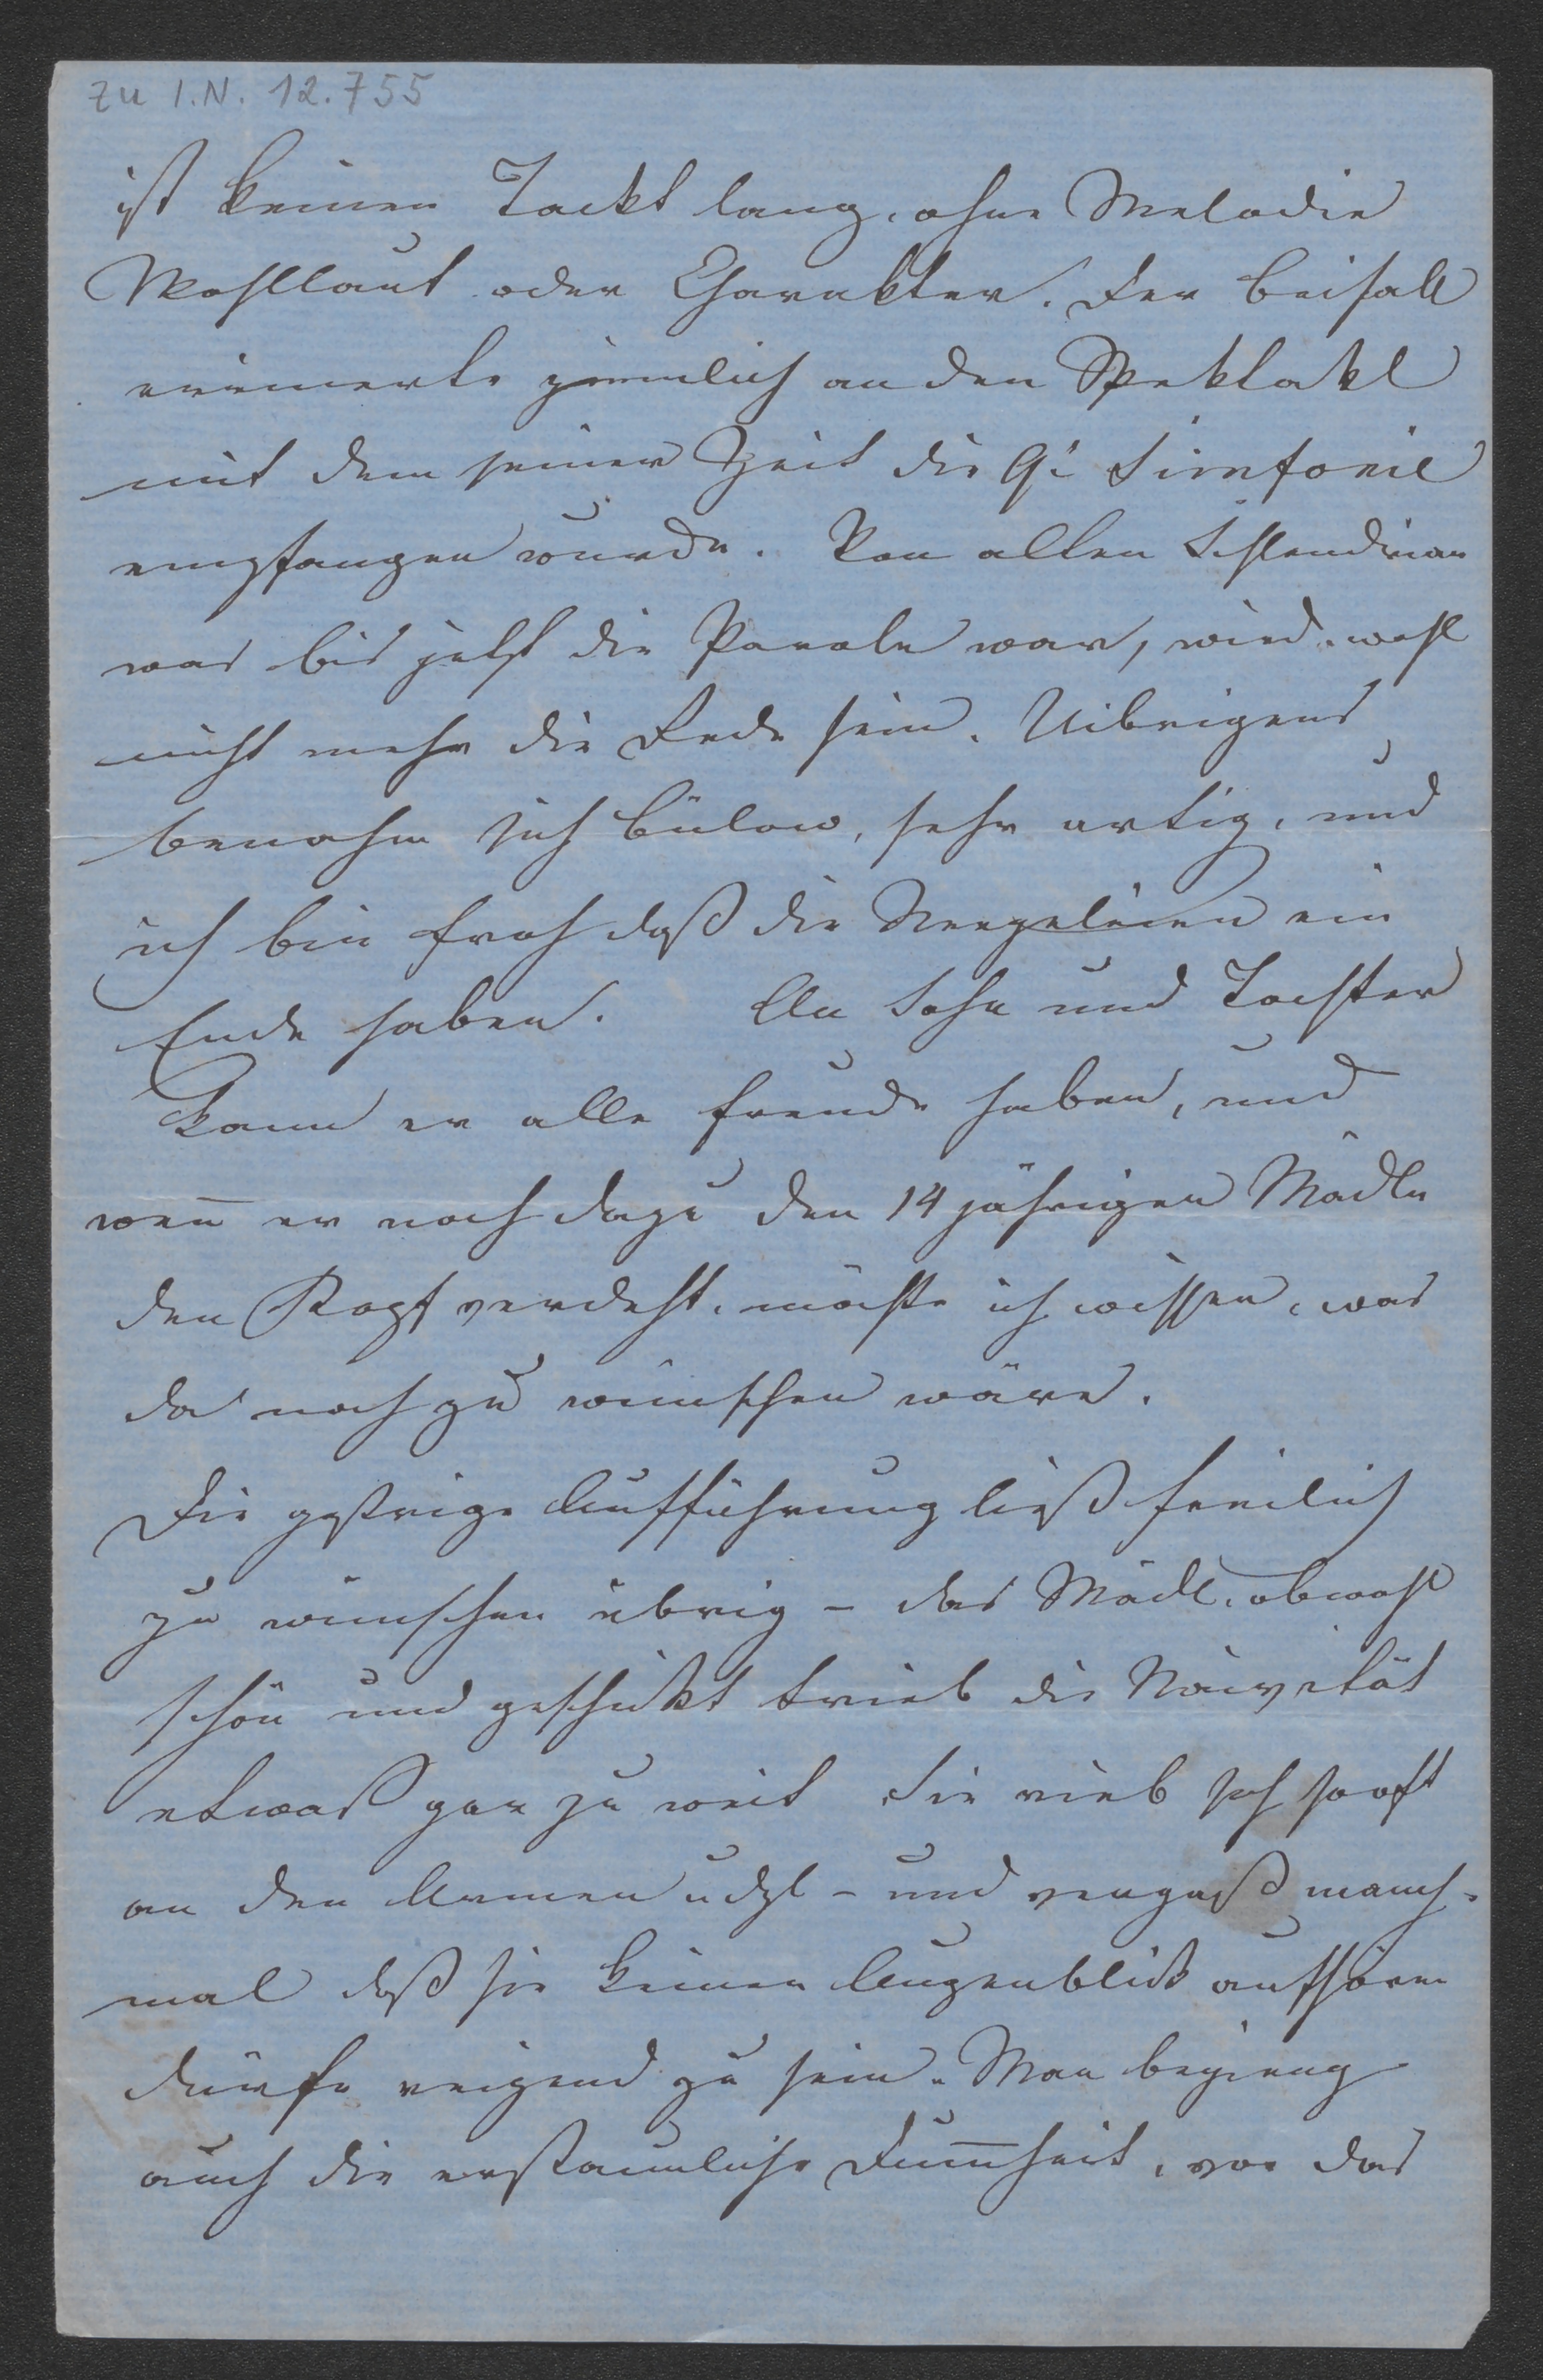 zu I.N. 12.755
ist keinen Tackt lang, ohne Melodie
Wohllaut oder Charakter. Der Beifall
erinnerte ziemlich an den Spektakl
mit dem seiner Zeit die 9t Simfonie
empfangen wurde. Von allen Schlendrian
was bis jetzt die Parole war, wird wohl
nicht mehr die Rede sein. Uibrigens
benahm sich Bülow, sehr artig, und
ich bin froh daß die ein
Ende haben. An Sohn und Tochter
kann er alle Freude haben, und
weñ er noch dazu den 14 jährigen Mädln
den Kopf verdreht, möchte ich wissen, was
da noch zu wünschen wäre.
Die gestrige Aufführung ließ freilich
zu wünschen übrig – das Mädl, obwohl
schön und geschickt trieb die Naivität
etwas gar zu weit Sie rieb sich so oft
an den Armen u dgl – und vergaß manch-
mal daß sie keinen Augenblick aufhören
dürfe reizend zu sein. Man begieng
auch die erstaunliche Dum̄heit, vor das